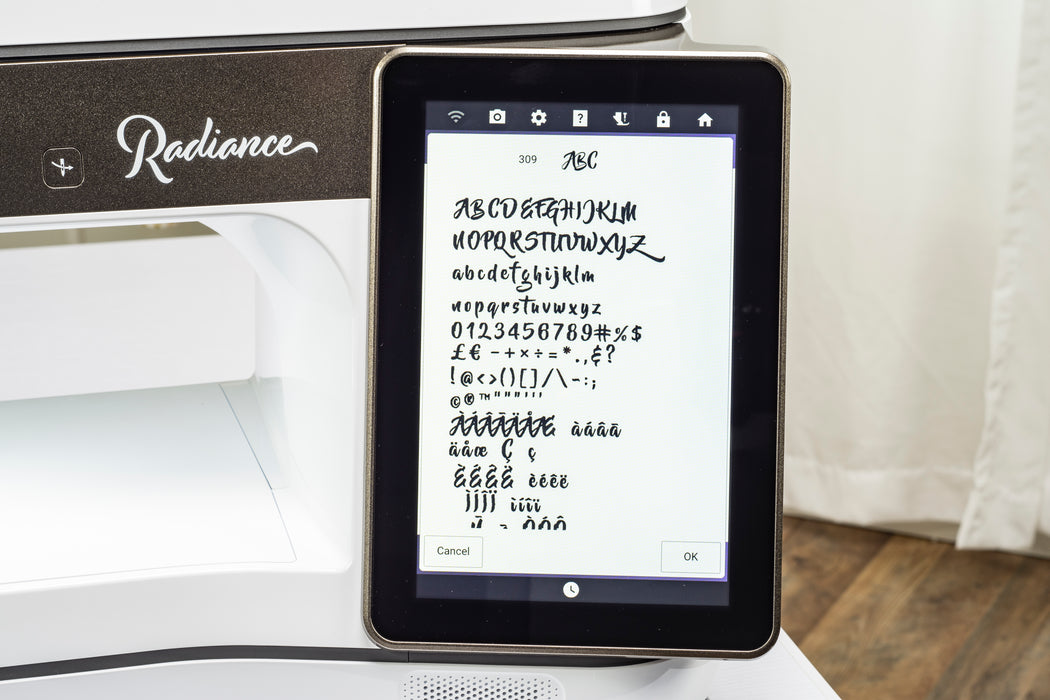 Radiance
309 ABC
ABCDEFGHIJKLM
NOPQRSTUVWXYZ
abcdefghijklm
nopqrstuvwxyz
0123456789#%$
£€-+×÷=*.,&?
!@<>()[]/\~:;
©®™""""'''
ÀÁÂÃÄÅÆ àáâã
äåæ Ç ç
ÈÉÊË èéêë
ÌÍÎÏ ìíîï
Cancel
OK